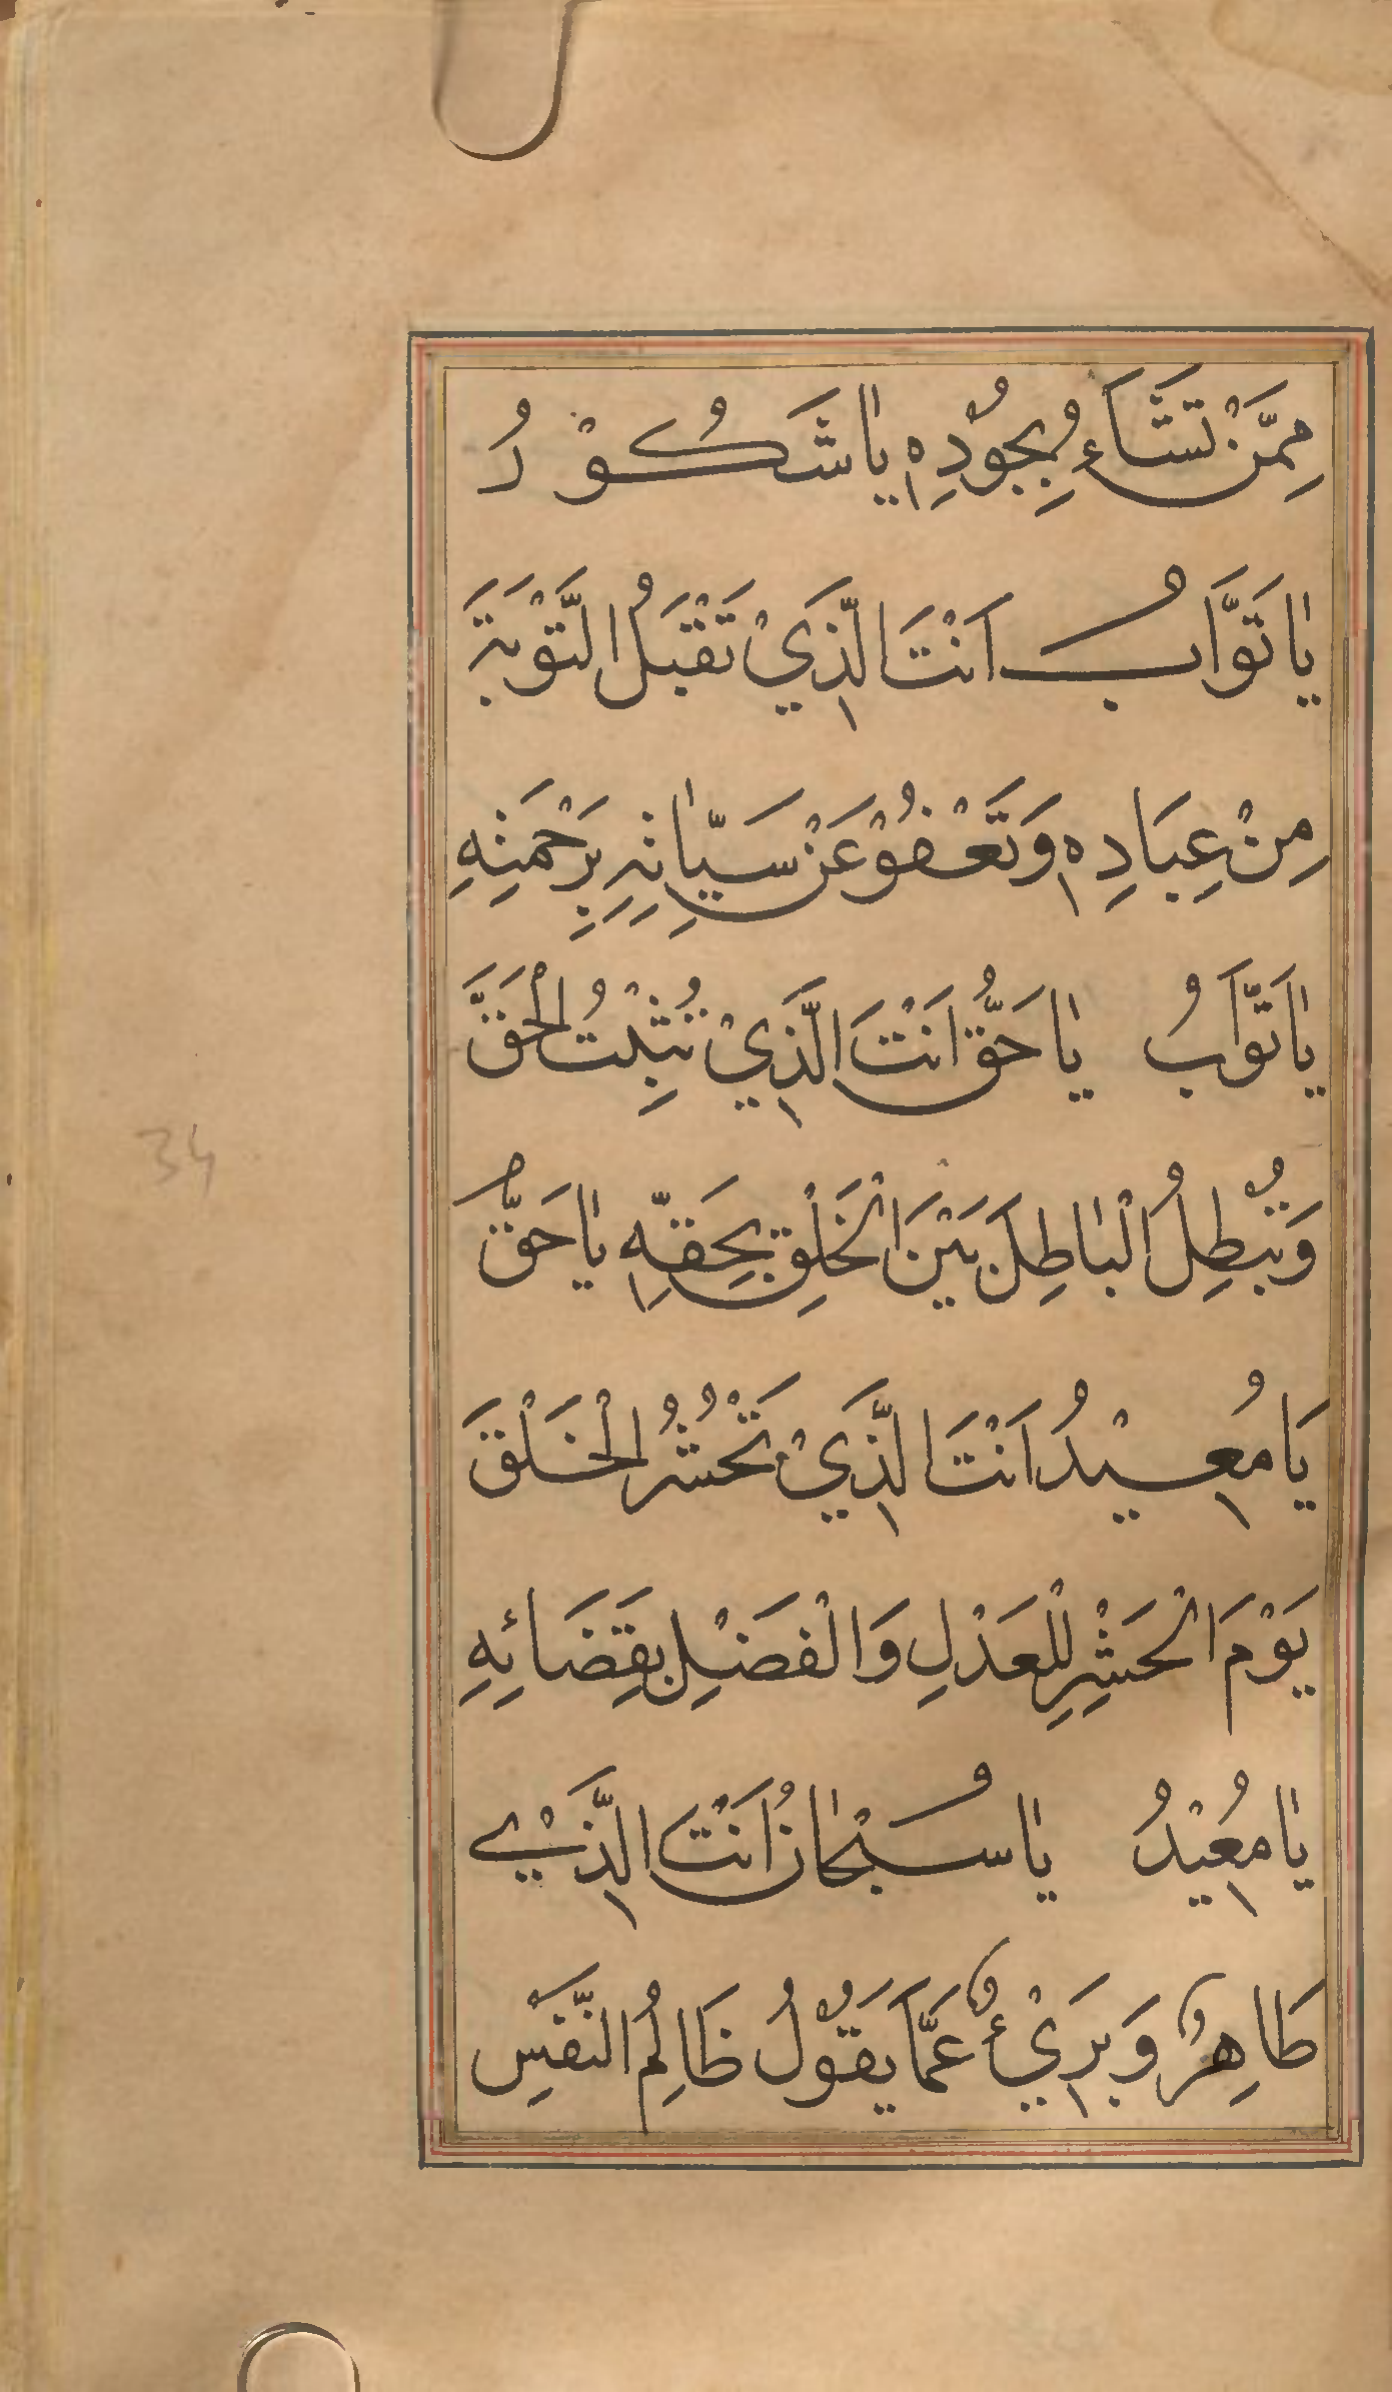 مِمَّنْ تَشَآءُ بِجُوْدِهٖ يٰا شَكُوْرُ
يٰا تَوَّابُ اَنْتَ الَّذٖيْ تَقْبَلُ التَّوْبَةَ
مِنْ عِبَادِهٖ وَتَعْفُوْ عَنْ سَيِّاٰتِهِ بِرَحْمَتِهِ
يٰا تَوَّابُ يٰا حَقُّ اَنْتَ الَّذٖيْ تُثْبِتُ الْحَقَّ
وَتُبْطِلُ الْبٰاطِلَ بَيْنَ الْخَلْقِ بِحَقِّهٖ يٰا حَقُّ
يَا مُعٖيْدُ اَنْتَ الَّذٖيْ تَحْشُرُ الْخَلْقَ
يَوْمَ الْحَشْرِ لِلْعَدْلِ وَالْفَضْلِ بِقَضَائِهِ
يٰا مُعٖيْدُ يٰا سُبْحٰانُ اَنْتَ الَّذٖيْ
طَاهِرٌ وَبَرٖيْءٌ عَمَّا يَقُوْلُ ظَالِمُ النَّفْسِ
34